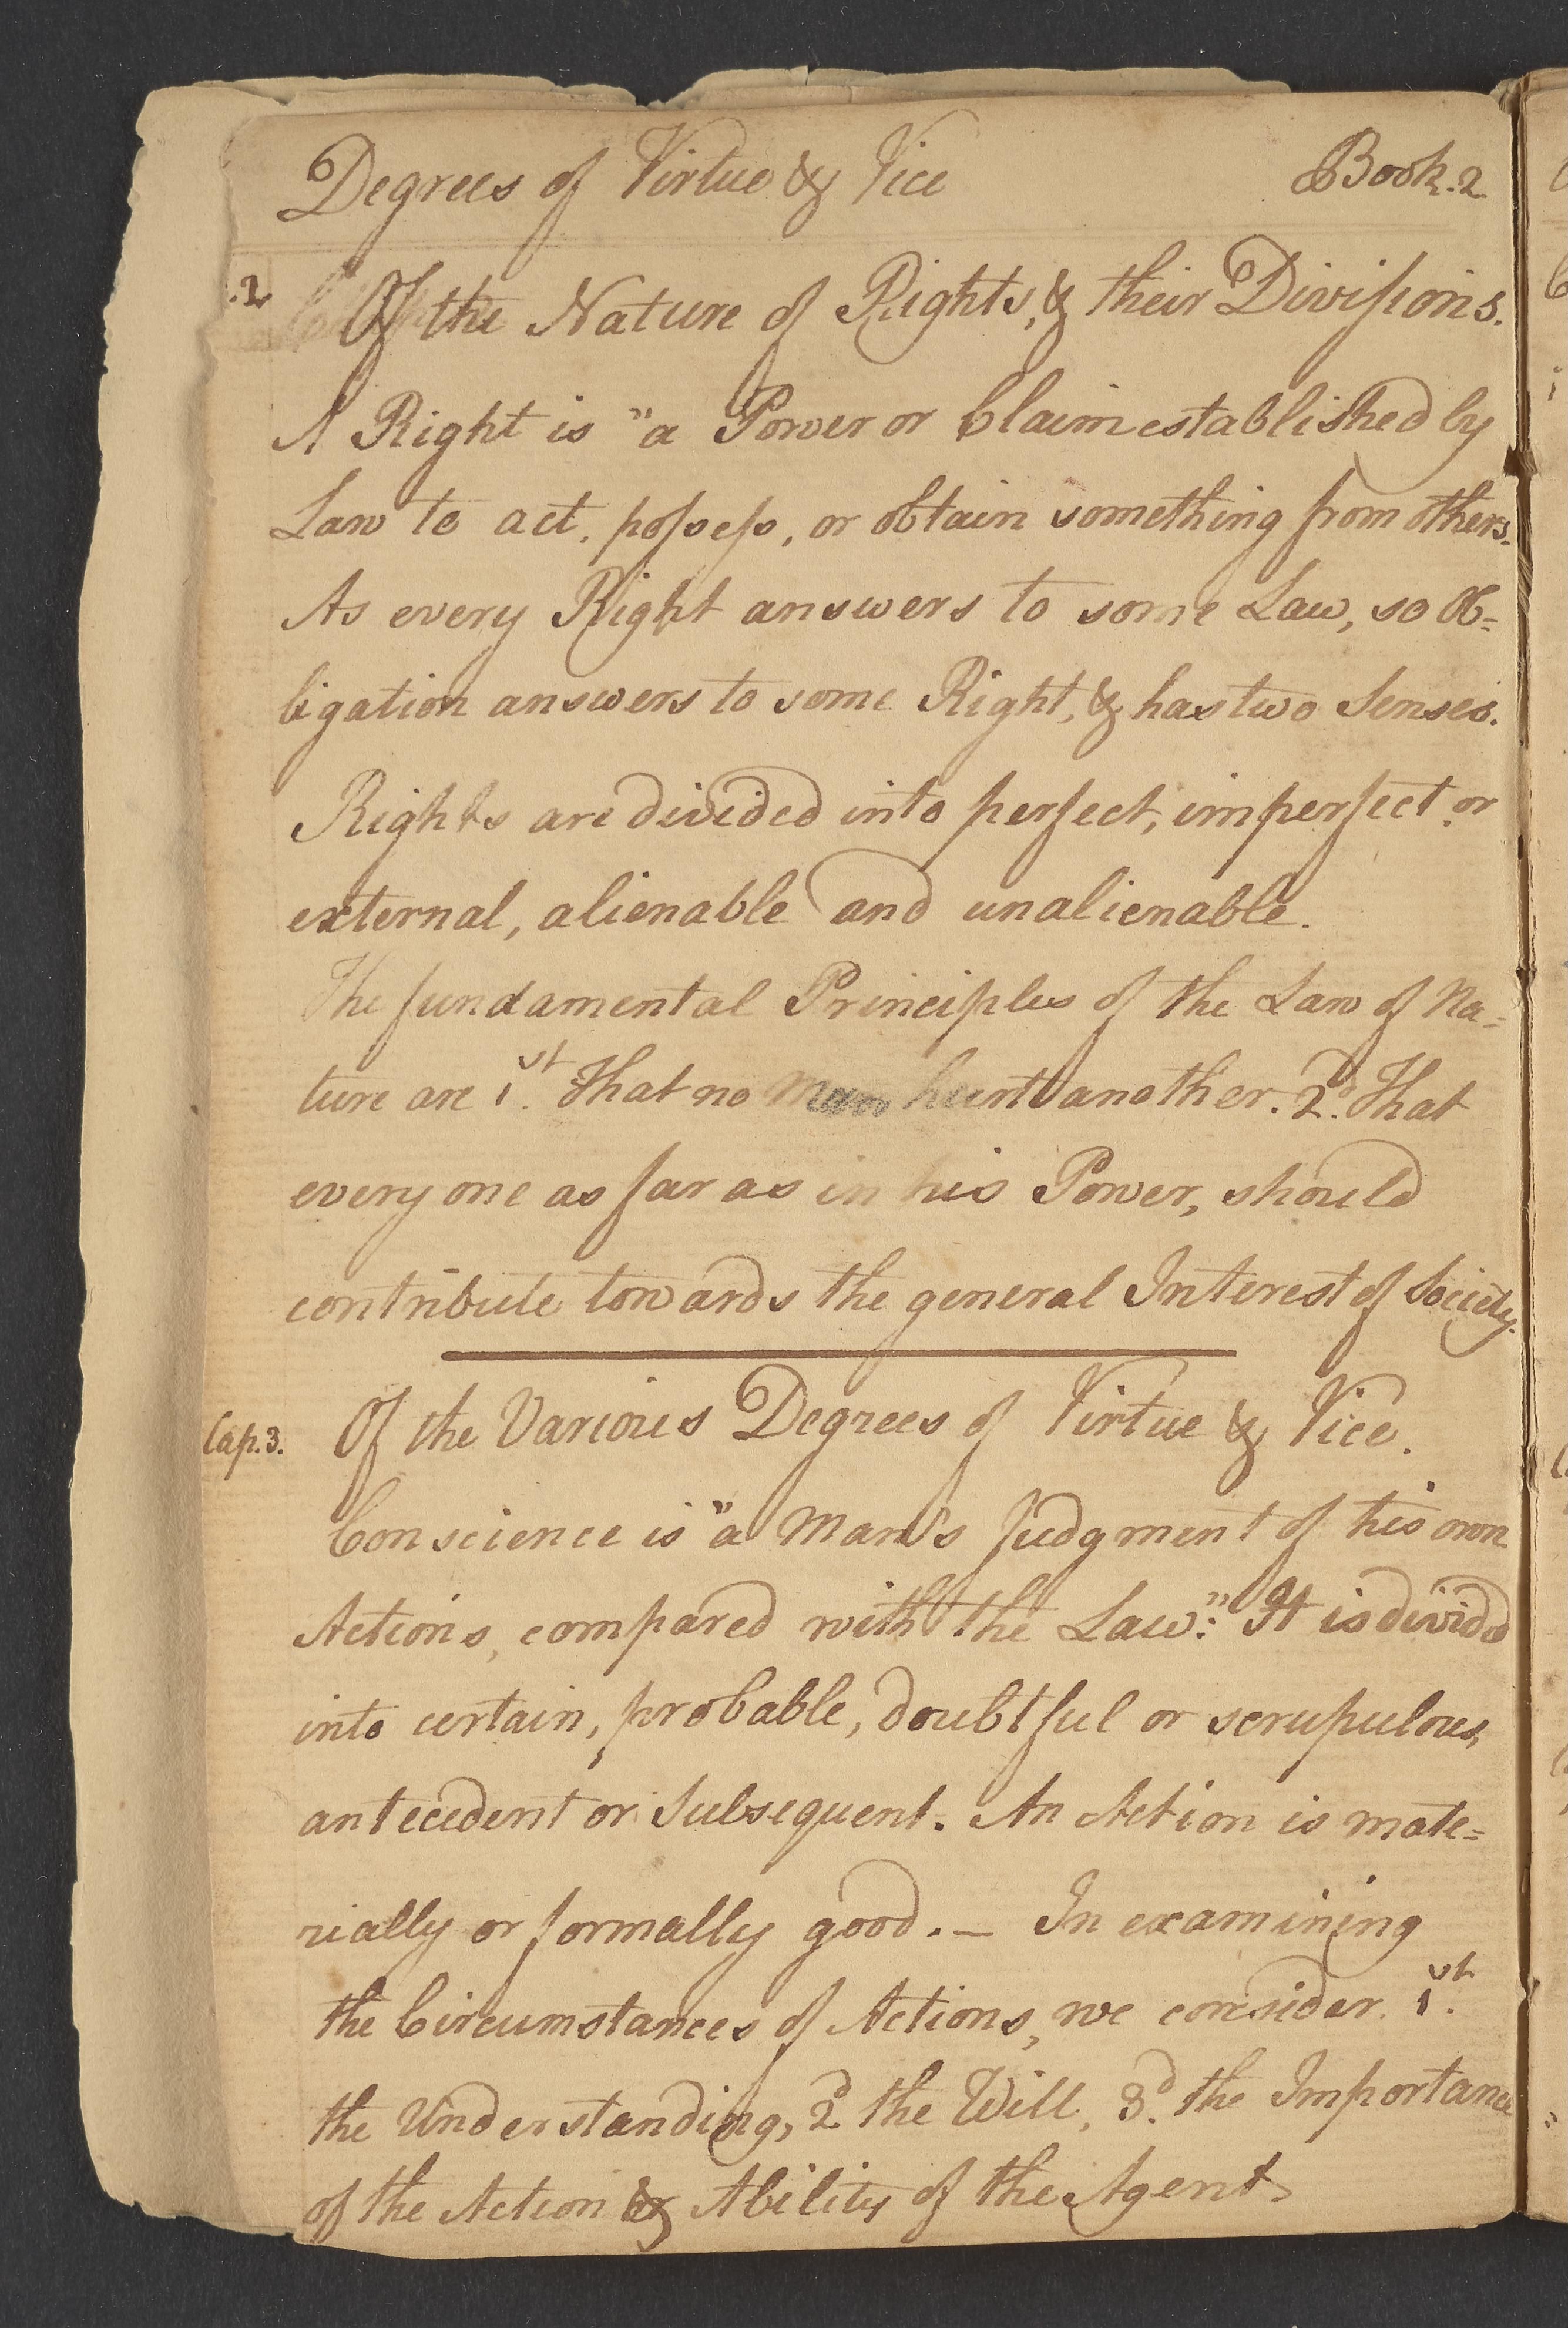 Degrees of Virtue & Vice Book. 2
.2 Of the Nature of Rights, & their Divisions.
A Right is "a Power or Claim established by
Law to act, possess, or obtain something from others.
As every Right answers to some Law, so Ob=
ligation answers to some Right, & has two Senses.
Rights are divided into perfect, imperfect or
external, alienable and unalienable.
The fundamental Principles of the Law of Na=
ture are 1st. That no Man hurt another. 2d. That
every one as far as in his Power, should
contribute towards the general Interest of Society.
Cap. 3. Of the Various Degrees of Virtue & Vice.
Conscience is "a Man's Judgment of his own
Actions, compared with the Law:" It is divided
into certain, probable, doubtful or scrupulous,
antecedent or Subsequent. An Action is mate=
rially or formally good. — In examining
the Circumstances of Actions, we consider. 1st.
the Understanding, 2d. the Will, 3d. the Importance
of the Action & Ability of the Agent